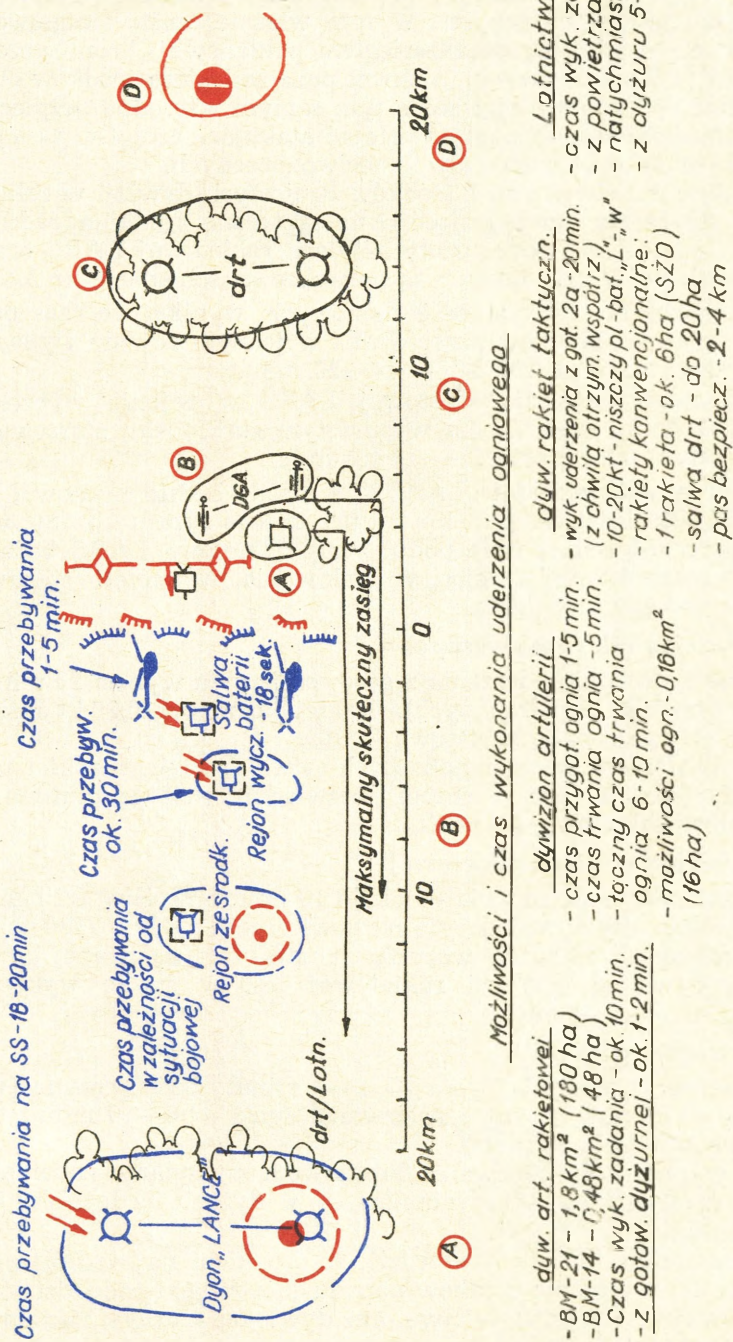 Czas przebywania na SS-18-20min
Czas przebywania
1-5 min.
Czas przebyw.
ok. 30 min.
Czas przebywania
w zależności od
sytuacji
bojowej
Rejon ześrodk.
Salwa
baterii
Rejon wycz. - 18 sek.
Dyon „LANCE”
drt/Lotn.
Maksymalny skuteczny zasięg
A
B
DGA
C
drt
D
20km
10
0
10
20km
A
B
C
D
Możliwości i czas wykonania uderzenia ogniowego
dyw. art. rakietowej
- BM-21 - 1,8km² (180 ha)
- BM-14 - 0,48km² (48 ha)
- Czas wyk. zadania - ok. 10min.
- z gotow. dyżurnej - ok. 1-2min.
dywizjon artylerii
- czas przygot. ognia 1-5min.
- czas trwania ognia - 5min.
- łączny czas trwania
ognia 6-10 min.
- możliwości ogn. - 0,16km²
(16 ha)
dyw. rakiet taktyczn.
- wyk. uderzenia z got. 2a - 20min.
(z chwilą otrzym. współrz.)
- 10-20kt - niszczy pl-bat. „L”-„W”
- rakiety konwencjonalne:
- 1 rakieta - ok. 6ha (SŻO)
- salwa drt - do 20ha
- pas bezpiecz. - 2-4 km
Lotnictw
- czas wyk. za
- z powietrza
- natychmias
- z dyżuru 5-